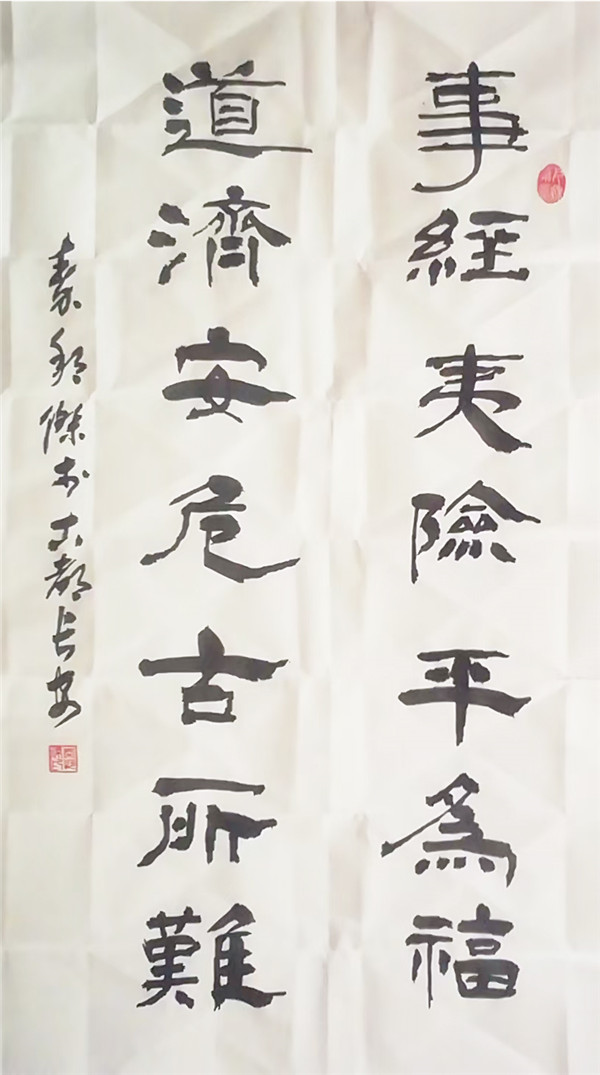 事經夷險平為福
道濟安危古所難
秦邦傑書古都長安